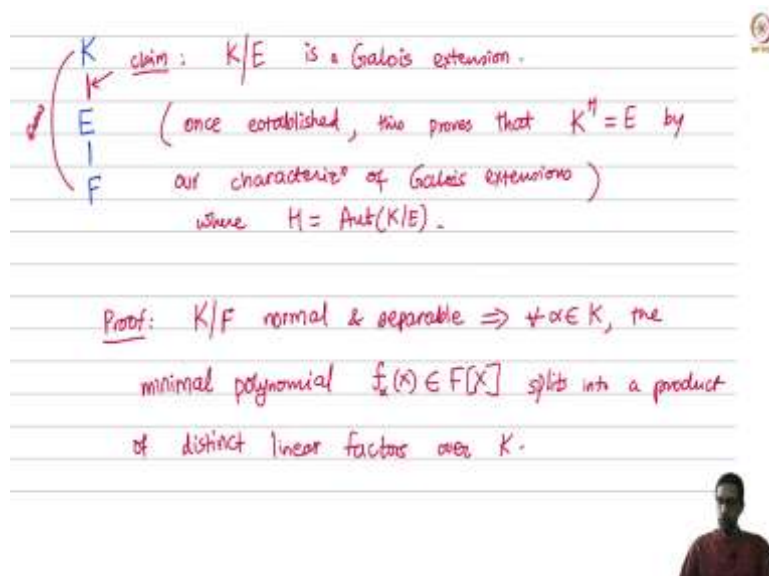 K claim : K/E is a Galois extension.
E (once established, this proves that K^H = E by
F our characteriz^n of Galois extensions)
where H = Aut(K/E).
Proof: K/F normal & separable ⇒ ∀ α ∈ K, the
minimal polynomial f_α(x) ∈ F[X] splits into a product
of distinct linear factors over K.